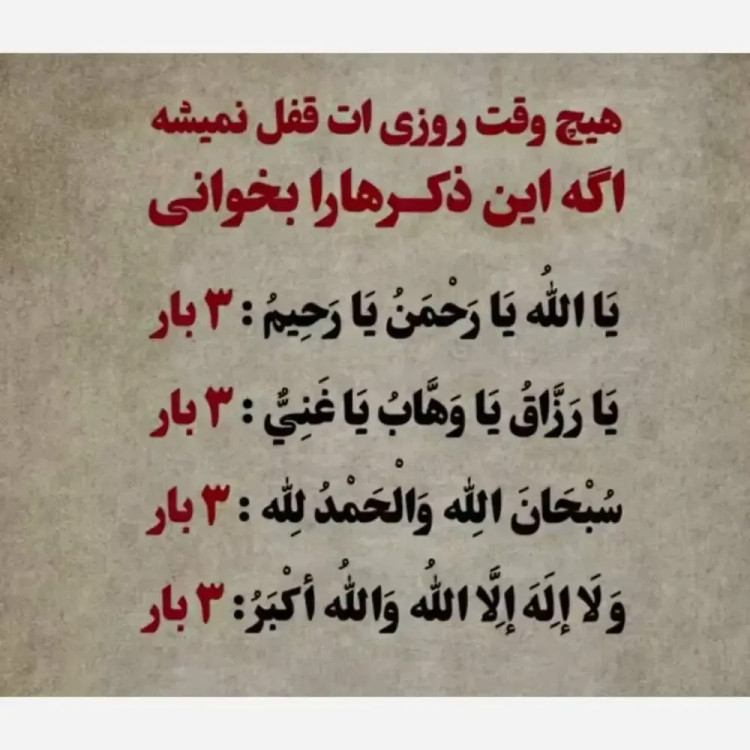 هیچ وقت روزی ات قفل نمیشه
اگه این ذکرهارا بخوانی
یَا اللهُ یَا رَحْمَنُ یَا رَحِیمُ : ۳ بار
یَا رَزَّاقُ یَا وَهَّابُ یَا غَنِيُّ : ۳ بار
سُبْحَانَ اللهِ وَالْحَمْدُ لِلهِ : ۳ بار
وَلَا إِلَهَ إِلَّا اللهُ وَاللهُ أکْبَرُ: ۳ بار